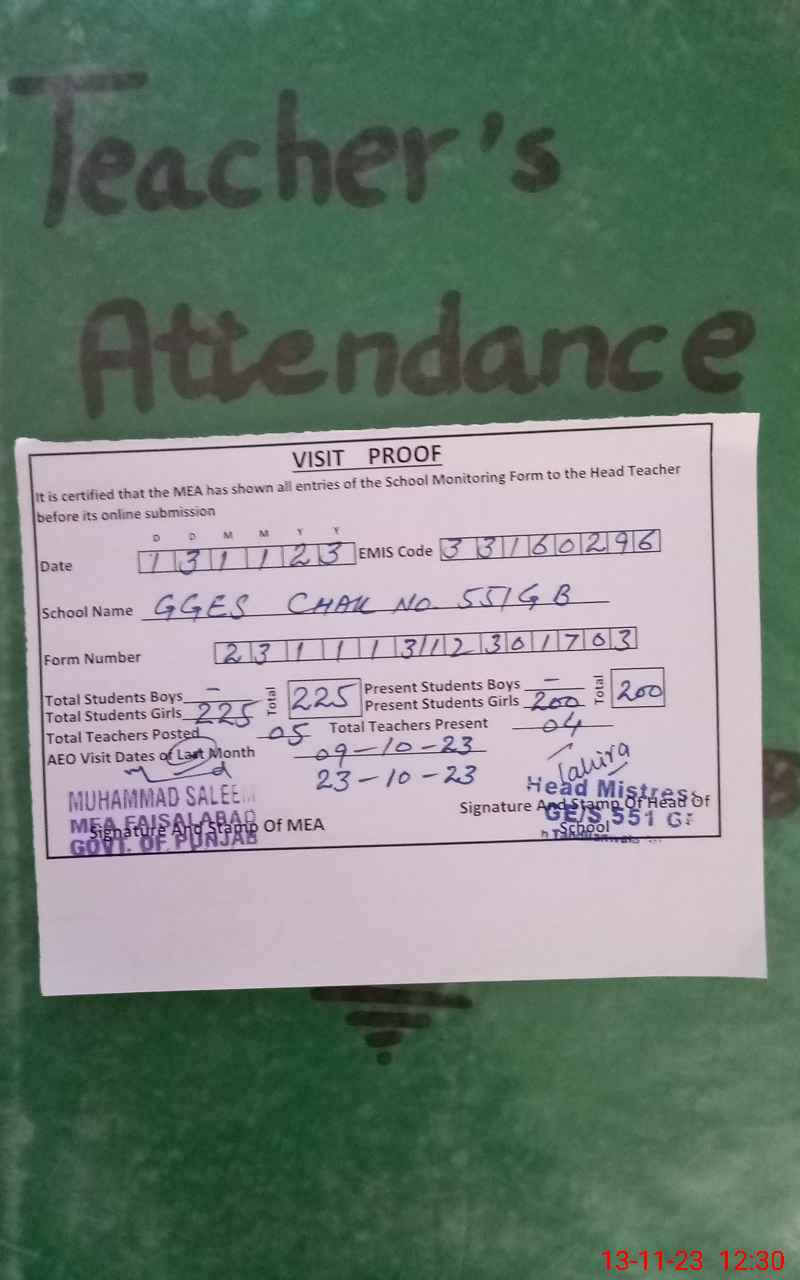 Teacher's
Attendance
VISIT PROOF
It is certified that the MEA has shown all entries of the School Monitoring Form to the Head Teacher
before its online submission
D D M M Y Y
Date 131123 EMIS Code 33160296
School Name GGES CHAK NO. 551GB
Form Number 231113/12301703
Total Students Boys - Total 225 Present Students Boys - Total 200
Total Students Girls 225 Present Students Girls 200
Total Teachers Posted 05 Total Teachers Present 04
AEO Visit Dates of Last Month 09-10-23
23-10-23
Tahira
MUHAMMAD SALEEM
MEA FAISALABAD
GOVT. OF PUNJAB
Signature And Stamp Of MEA
Head Mistress
GE/S 551 G
Signature And Stamp Of Head Of
School
13-11-23 12:30